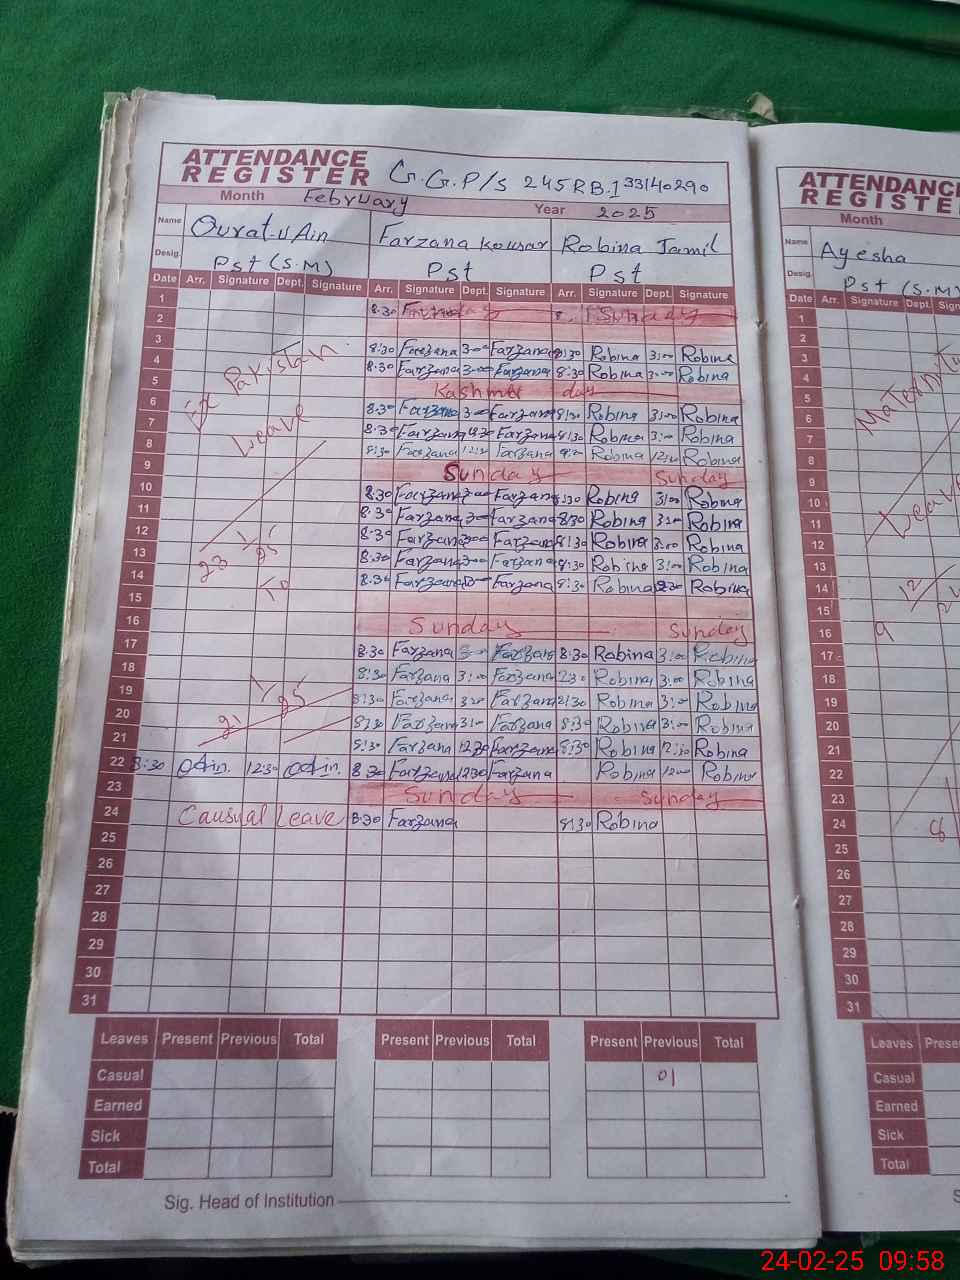 ATTENDANCE
REGISTER G.G.P/S 245 R.B.I 33140290
Month February Year 2025
Name Qurat-u-Ain Farzana kousar Robina Jamil
Desig. Pst (S.M) Pst Pst
Date Arr. Signature Dept. Signature Arr. Signature Dept. Signature Arr. Signature Dept. Signature
1 8:30
2 Sunday
3 8:30 Farzana 3:00 Farzana 8:30 Robina 3:00 Robina
4 8:30 Farzana 3:00 Farzana 8:30 Robina 3:00 Robina
5 Kashmir day
6 8:30 Farzana 3:00 Farzana 8:30 Robina 3:00 Robina
7 8:30 Farzana 12:30 Farzana 8:30 Robina 3:00 Robina
8 8:30 Farzana Farzana Robina 12:00 Robina
9 Sunday Sunday
10 8:30 Farzana 3:00 Farzana 8:30 Robina 3:00 Robina
11 8:30 Farzana 3:00 Farzana 8:30 Robina 3:00 Robina
12 8:30 Farzana 3:00 Farzana 8:30 Robina 3:00 Robina
13 8:30 Farzana 3:00 Farzana 8:30 Robina 3:00 Robina
14 8:30 Farzana Farzana 8:30 Robina Robina
15
16 Sunday Sunday
17 8:30 Farzana 3:00 Farzana 8:30 Robina 3:00 Robina
18 8:30 Farzana 3:00 Farzana Robina 3:00 Robina
19 8:30 Farzana 3:00 Farzana Robina 3:00 Robina
20 8:30 Farzana 3:00 Farzana 8:30 Robina 3:00 Robina
21 8:30 Farzana 12:30 Farzana 8:30 Robina 12:30 Robina
22 8:30 QAin. 12:30 QAin. 8:30 Farzana 12:30 Farzana Robina 12:00 Robina
23 Sunday Sunday
24 Causual Leave 8:30 Farzana 8:30 Robina
25
26
27
28
29
30
31
Ex Pakistan
Leave
23 1/25
To
21 1/25
Leaves Present Previous Total Present Previous Total Present Previous Total
Casual 01
Earned
Sick
Total
Sig. Head of Institution
ATTENDANC
REGISTE
Month
Name Ayesha
Desig. Pst (S.M)
Date Arr. Signature Dept.
1
2
3
4
5
6
7
8
9
10
11
12
13
14
15
16
17
18
19
20
21
22
23
24
25
26
27
28
29
30
31
Leave
9 12/
8
Leaves
Casual
Earned
Sick
Total
24-02-25 09:58